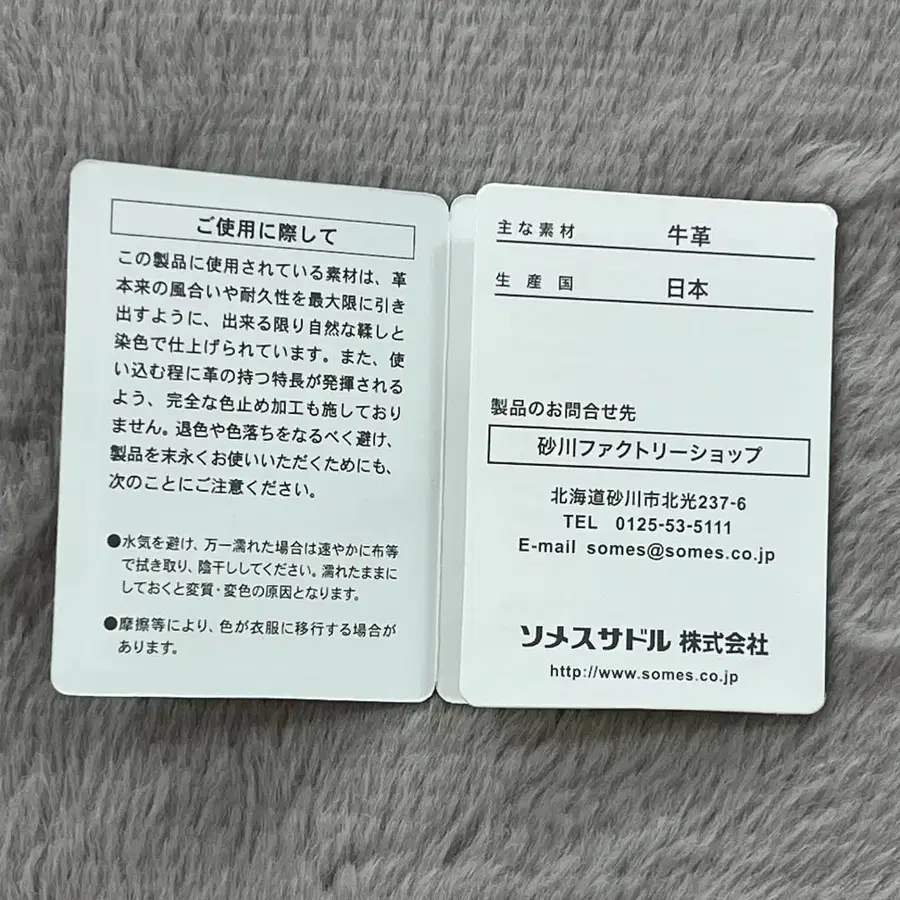 ご使用に際して
この製品に使用されている素材は、革
本来の風合いや耐久性を最大限に引き
出すように、出来る限り自然な鞣しと
染色で仕上げられています。また、使
い込む程に革の持つ特長が発揮される
よう、完全な色止め加工も施しており
ません。退色や色落ちをなるべく避け、
製品を末永くお使いいただくためにも、
次のことにご注意ください。
●水気を避け、万一濡れた場合は速やかに布等
で拭き取り、陰干ししてください。濡れたままに
しておくと変質・変色の原因となります。
●摩擦等により、色が衣服に移行する場合が
あります。
主な素材 牛革
生産国 日本
製品のお問合せ先
砂川ファクトリーショップ
北海道砂川市北光237-6
TEL 0125-53-5111
E-mail somes@somes.co.jp
ソメスサドル 株式会社
http://www.somes.co.jp